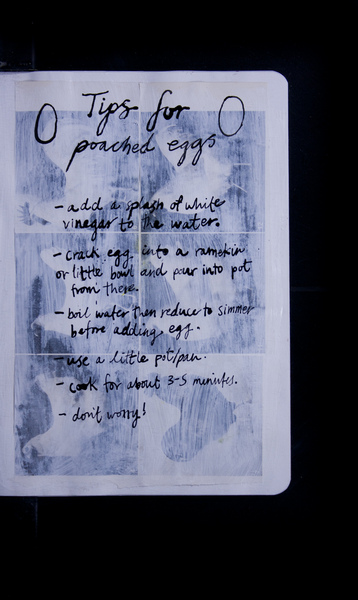 Tips for
poached eggs
- add a splash of white
vinegar to the water.
- crack egg into a ramekin
or little bowl and pour into pot
from there.
- boil water then reduce to simmer
before adding egg.
- use a little pot/pan.
- cook for about 3-5 minutes.
- don't worry!